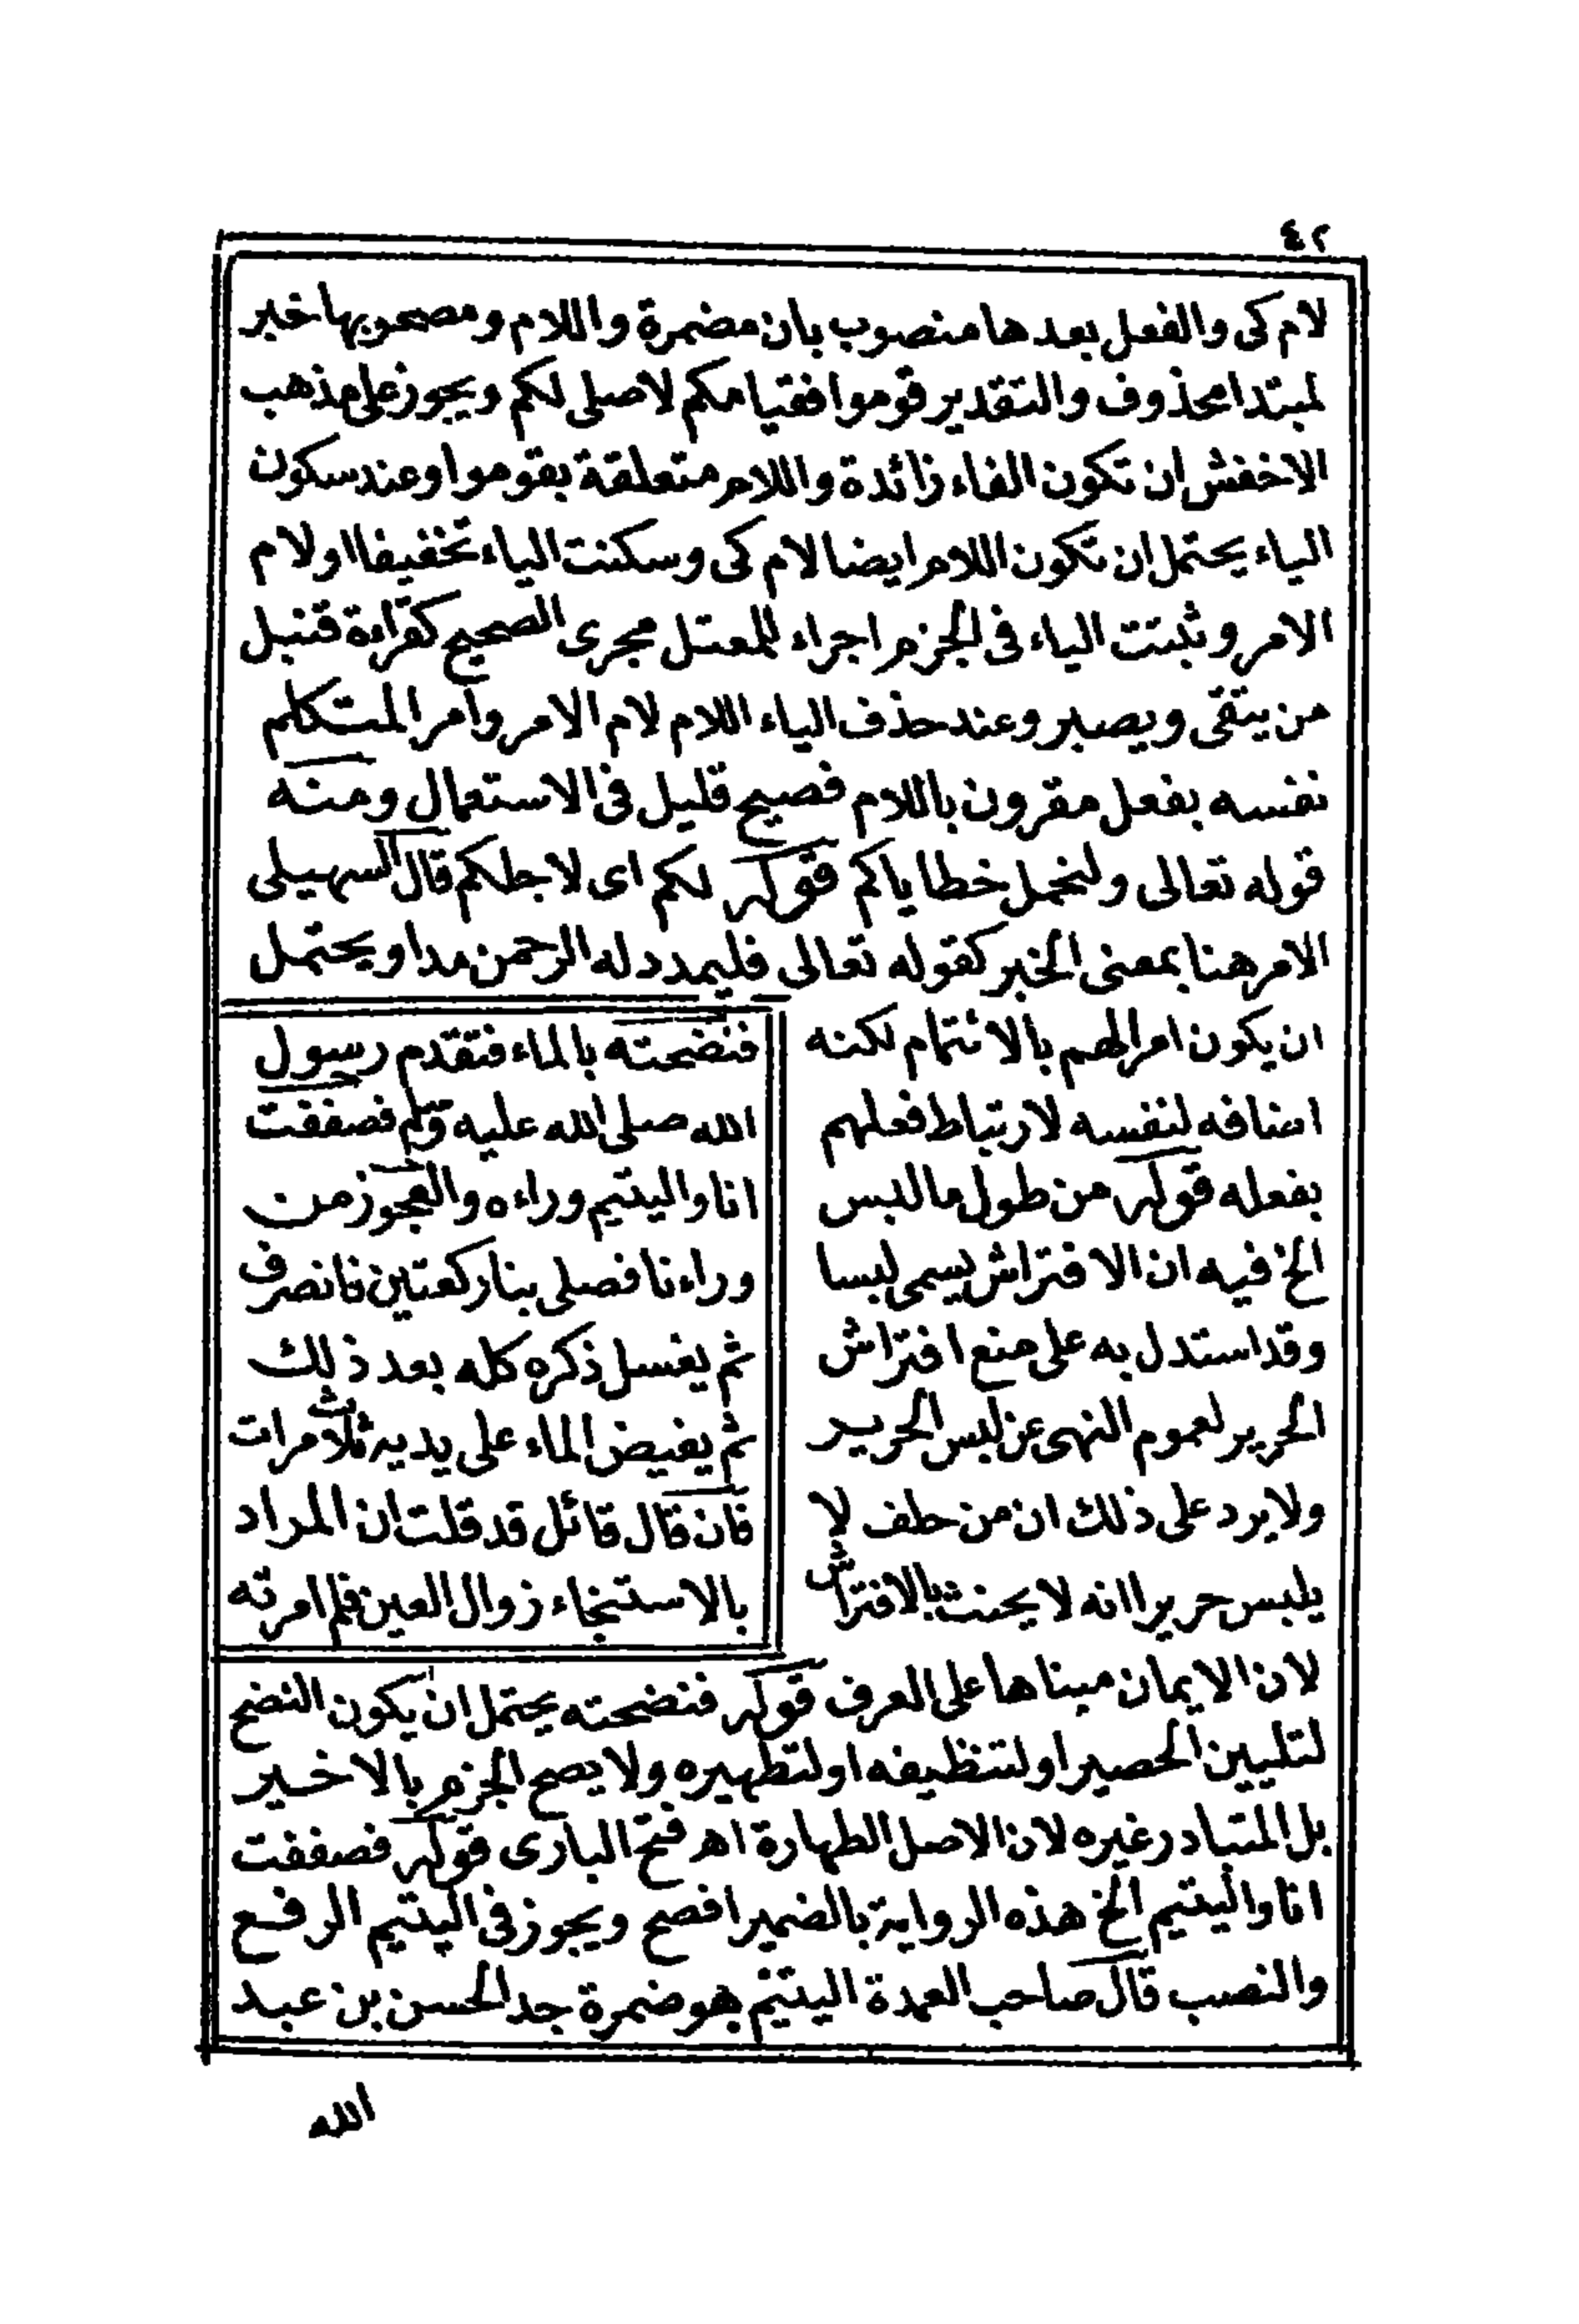 ٤٢
لام كى والفعل بعدها منصوب بان مضمرة واللام ومصحوبها خبر
لمبتدا محذوف والتقدير قوموا فقيامكم لاصلى لكم ويجوز على مذهب
الاخفش ان تكون الفاء زائدة واللام متعلقة بقوموا وعند سكون
الياء يحتمل ان تكون اللام ايضا لام كى وسكنت الياء تخفيفا اولام
الامر وثبتت الياء فى الجزم اجراء للمعتل مجرى الصحيح كقراءة قنبل
من يتقى ويصبر وعند حذف الياء اللام لام الامر وامر المتكلم
نفسه بفعل مقرون باللام فصيح قليل فى الاستعمال ومنه
قوله تعالى ولنحمل خطاياكم قوله لكم اى لاجلكم قال السهيلى
الامر هنا بمعنى الخبر كقوله تعالى فليمدد له الرحمن مدا ويحتمل
ان يكون امرالهم بالائتمام لكنه
اضافه لنفسه لارتباط فعلهم
بفعله قوله من طول ما لبس
الخ فيه ان الافتراش يسمى لبسا
وقد استدل به على منع افتراش
الحرير لعموم النهى عن لبس الحرير
ولا يرد على ذلك ان من حلف لا
يلبس حريرا انه لا يحنث بالافتراش
فنضحته بالماء فتقدم رسول
الله صلى الله عليه وسلم فصففت
انا واليتيم وراءه والعجوز من
وراءنا فصلى بنا ركعتين فانصرف
ثم يغسل ذكره كله بعد ذلك
ثم يفيض الماء على يديه ثلاث مرات
فان قال قائل قد قلت ان المراد
بالاستنجاء زوال العين فلم امرته
لان الايمان مبناها على العرف قوله فنضحته يحتمل ان يكون النضح
لتليين الحصير او لتنظيفه او لتطهيره ولا يصح الجزم بالاخير
بل المتبادر غيره لان الاصل الطهارة اهـ فتح البارى قوله فصففت
انا واليتيم الخ هذه الرواية بالضمير افصح ويجوز فى اليتيم الرفع
والنصب قال صاحب العمدة اليتيم هو ضمرة جد الحسن بن عبد
الله